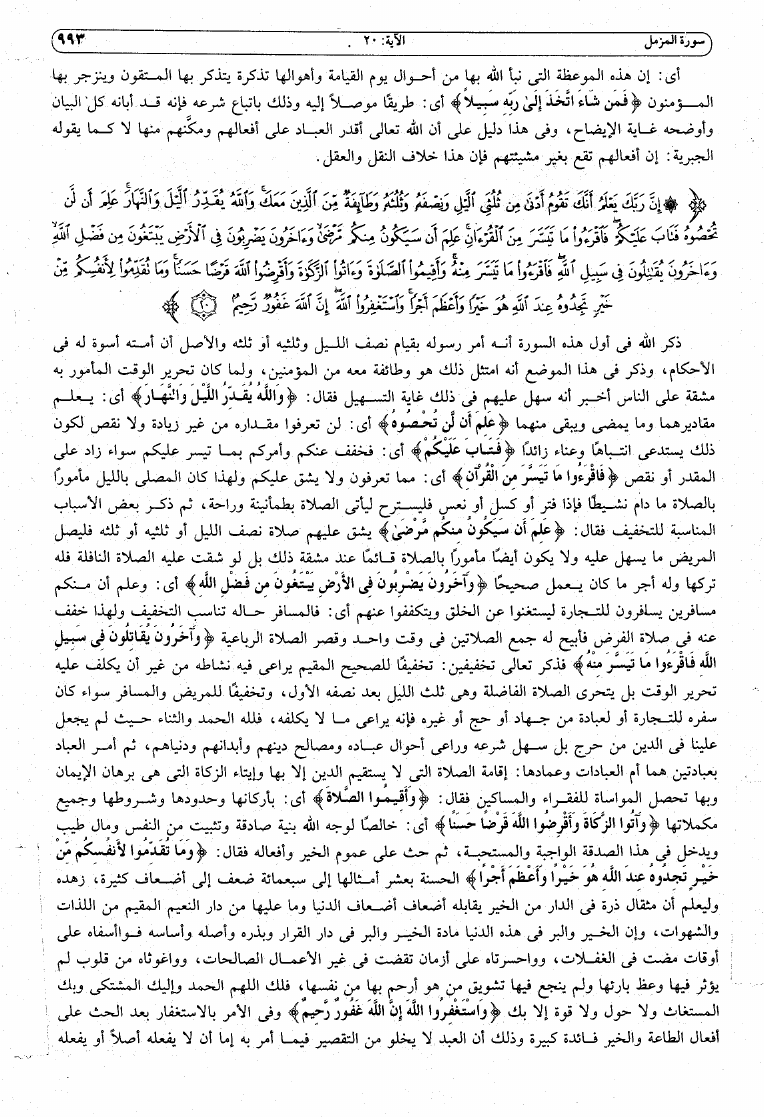 سورة المزمل الآية: ٢٠ ٩٩٣
أى: إن هذه الموعظة التى نبأ الله بها من أحـوال يوم القيامة وأهوالها تذكرة يتذكر بها المـتقون وينزجر بها
المـؤمنون ﴿فَمَن شَاءَ اتَّخَذَ إِلَىٰ رَبِّهِ سَبِيلاً﴾ أى: طريقًا موصـلاً إليه وذلك باتباع شرعه فإنه قـد أبانه كل البيان
وأوضحه غـاية الإيضاح، وفى هذا دليل على أن الله تعالى أقدر العبـاد على أفعالهم ومكَّنهم منها لا كـما يقوله
الجبرية: إن أفعالهم تقع بغير مشيئتهم فإن هذا خلاف النقل والعقل.
﴿۞ إِنَّ رَبَّكَ يَعْلَمُ أَنَّكَ تَقُومُ أَدْنَىٰ مِن ثُلُثَىِ ٱلَّيْلِ وَنِصْفَهُۥ وَثُلُثَهُۥ وَطَآئِفَةٌ مِّنَ ٱلَّذِينَ مَعَكَ ۚ وَٱللَّهُ يُقَدِّرُ ٱلَّيْلَ وَٱلنَّهَارَ ۚ عَلِمَ أَن لَّن
تُحْصُوهُ فَتَابَ عَلَيْكُمْ ۖ فَٱقْرَءُوا۟ مَا تَيَسَّرَ مِنَ ٱلْقُرْءَانِ ۚ عَلِمَ أَن سَيَكُونُ مِنكُم مَّرْضَىٰ ۙ وَءَاخَرُونَ يَضْرِبُونَ فِى ٱلْأَرْضِ يَبْتَغُونَ مِن فَضْلِ ٱللَّهِ ۙ
وَءَاخَرُونَ يُقَٰتِلُونَ فِى سَبِيلِ ٱللَّهِ ۖ فَٱقْرَءُوا۟ مَا تَيَسَّرَ مِنْهُ ۚ وَأَقِيمُوا۟ ٱلصَّلَوٰةَ وَءَاتُوا۟ ٱلزَّكَوٰةَ وَأَقْرِضُوا۟ ٱللَّهَ قَرْضًا حَسَنًا ۚ وَمَا تُقَدِّمُوا۟ لِأَنفُسِكُم مِّنْ
خَيْرٍ تَجِدُوهُ عِندَ ٱللَّهِ هُوَ خَيْرًا وَأَعْظَمَ أَجْرًا ۚ وَٱسْتَغْفِرُوا۟ ٱللَّهَ ۖ إِنَّ ٱللَّهَ غَفُورٌ رَّحِيمٌ ٢٠﴾
ذكر الله فى أول هذه السورة أنـه أمر رسوله بقيام نصف اللـيل وثلثيه أو ثلثه والأصل أن أمـته أسوة له فى
الأحكام، وذكر فى هذا الموضع أنه امتثل ذلك هو وطائفة معه من المؤمنين، ولما كان تحرير الوقت المأمور به
مشقة على الناس أخـبر أنه سهل عليهم فى ذلك غاية التسـهيل فقال: ﴿وَاللَّهُ يُقَدِّرُ اللَّيْلَ وَالنَّهَارَ﴾ أى: يعلـم
مقاديرهما وما يمضى ويبقى منهما ﴿عَلِمَ أَن لَّن تُحْصُوهُ﴾ أى: لن تعرفوا مقـداره من غير زيادة ولا نقص لكون
ذلك يستدعى انتـباهًا وعناء زائدًا ﴿فَتَابَ عَلَيْكُمْ﴾ أى: فخفف عنكم وأمركم بمـا تيسر عليكم سواء زاد على
المقدر أو نقص ﴿فَاقْرَءُوا مَا تَيَسَّرَ مِنَ الْقُرْآنِ﴾ أى: مما تعرفون ولا يشق عليكم ولهذا كان المصلى بالليل مأمورًا
بالصلاة ما دام نشـيطًا فإذا فتر أو كسل أو نعس فليسـترح ليأتى الصلاة بطمأنينة وراحة، ثم ذكـر بعض الأسباب
المناسبة للتخفيف فقال: ﴿عَلِمَ أَن سَيَكُونُ مِنكُم مَّرْضَىٰ﴾ يشق عليهم صلاة نصف الليل أو ثلثيه أو ثلثه فليصل
المريض ما يسهل عليه ولا يكون أيضًا مأمورًا بالصلاة قـائمًا عند مشقة ذلك بل لو شقت عليه الصلاة النافلة فله
تركها وله أجر ما كان يـعمل صحيحًا ﴿وَآخَرُونَ يَضْرِبُونَ فِى الأَرْضِ يَبْتَغُونَ مِن فَضْلِ اللَّهِ﴾ أى: وعلم أن مـنكم
مسافرين يسافرون للتـجارة ليستغنوا عن الخلق ويتكففوا عنهم أى: فالمسافر حـاله تناسب التخفيف ولهذا خفف
عنه فى صلاة الفرض فأبيح له جمع الصلاتين فى وقت واحـد وقصر الصلاة الرباعية ﴿وَآخَرُونَ يُقَاتِلُونَ فِى سَبِيلِ
اللَّهِ فَاقْرَءُوا مَا تَيَسَّرَ مِنْهُ﴾ فذكر تعالى تخفيفين: تخفيفًا للصحيح المقيم يراعى فيه نشاطه من غير أن يكلف عليه
تحرير الوقت بل يتحرى الصلاة الفاضلة وهى ثلث الليل بعد نصفه الأول، وتخفيفًا للمريض والمسافر سواء كان
سفره للتـجارة أو لعبادة من جـهاد أو حج أو غيره فإنه يراعى مـا لا يكلفه، فلله الحمد والثناء حـيث لم يجعل
علينا فى الدين من حرج بل سـهل شرعه وراعى أحوال عبـاده ومصالح دينهم وأبدانهم ودنياهم، ثم أمـر العباد
بعبادتين هما أم العبادات وعمادها: إقامة الصلاة التى لا يستقيم الدين إلا بها وإيتاء الزكاة التى هى برهان الإيمان
وبها تحصل المواساة للفقـراء والمساكين فقال: ﴿وَأَقِيمُوا الصَّلاةَ﴾ أى: بأركانها وحدودها وشـروطها وجميع
مكملاتها ﴿وَآتُوا الزَّكَاةَ وَأَقْرِضُوا اللَّهَ قَرْضًا حَسَنًا﴾ أى: خالصًا لوجه الله بنية صادقة وتثبيت من النفس ومال طيب
ويدخل فى هذا الصدقة الواجبة والمستحبـة، ثم حث على عموم الخير وأفعاله فقال: ﴿وَمَا تُقَدِّمُوا لأَنفُسِكُم مِّنْ
خَيْرٍ تَجِدُوهُ عِندَ اللَّهِ هُوَ خَيْرًا وَأَعْظَمَ أَجْرًا﴾ الحسنة بعشر أمـثالها إلى سبعمائة ضعف إلى أضـعاف كثيرة، زهده
وليعلم أن مثقال ذرة فى الدار من الخير يقابله أضعاف أضـعاف الدنيا وما عليها من دار النعيم المقيم من اللذات
والشهوات، وإن الخـير والبر فى هذه الدنيا مادة الخيـر والبر فى دار القرار وبذره وأصله وأساسه فـواأسفاه على
أوقات مضت فى الغفـلات، وواحسرتاه على أزمان تقضت فى غير الأعمـال الصالحات، وواغوثاه من قلوب لم
يؤثر فيها وعظ بارئها ولم ينجع فيها تشويق من هو أرحم بها من نفسها، فلك اللهم الحمد وإليك المشتكى وبك
المستغاث ولا حول ولا قوة إلا بك ﴿وَاسْتَغْفِرُوا اللَّهَ إِنَّ اللَّهَ غَفُورٌ رَّحِيمٌ﴾ وفى الأمر بالاستغفار بعد الحث على
أفعال الطاعة والخير فـائدة كبيرة وذلك أن العبد لا يخلو من التقصير فيمـا أمر به إما أن لا يفعله أصلاً أو يفعله